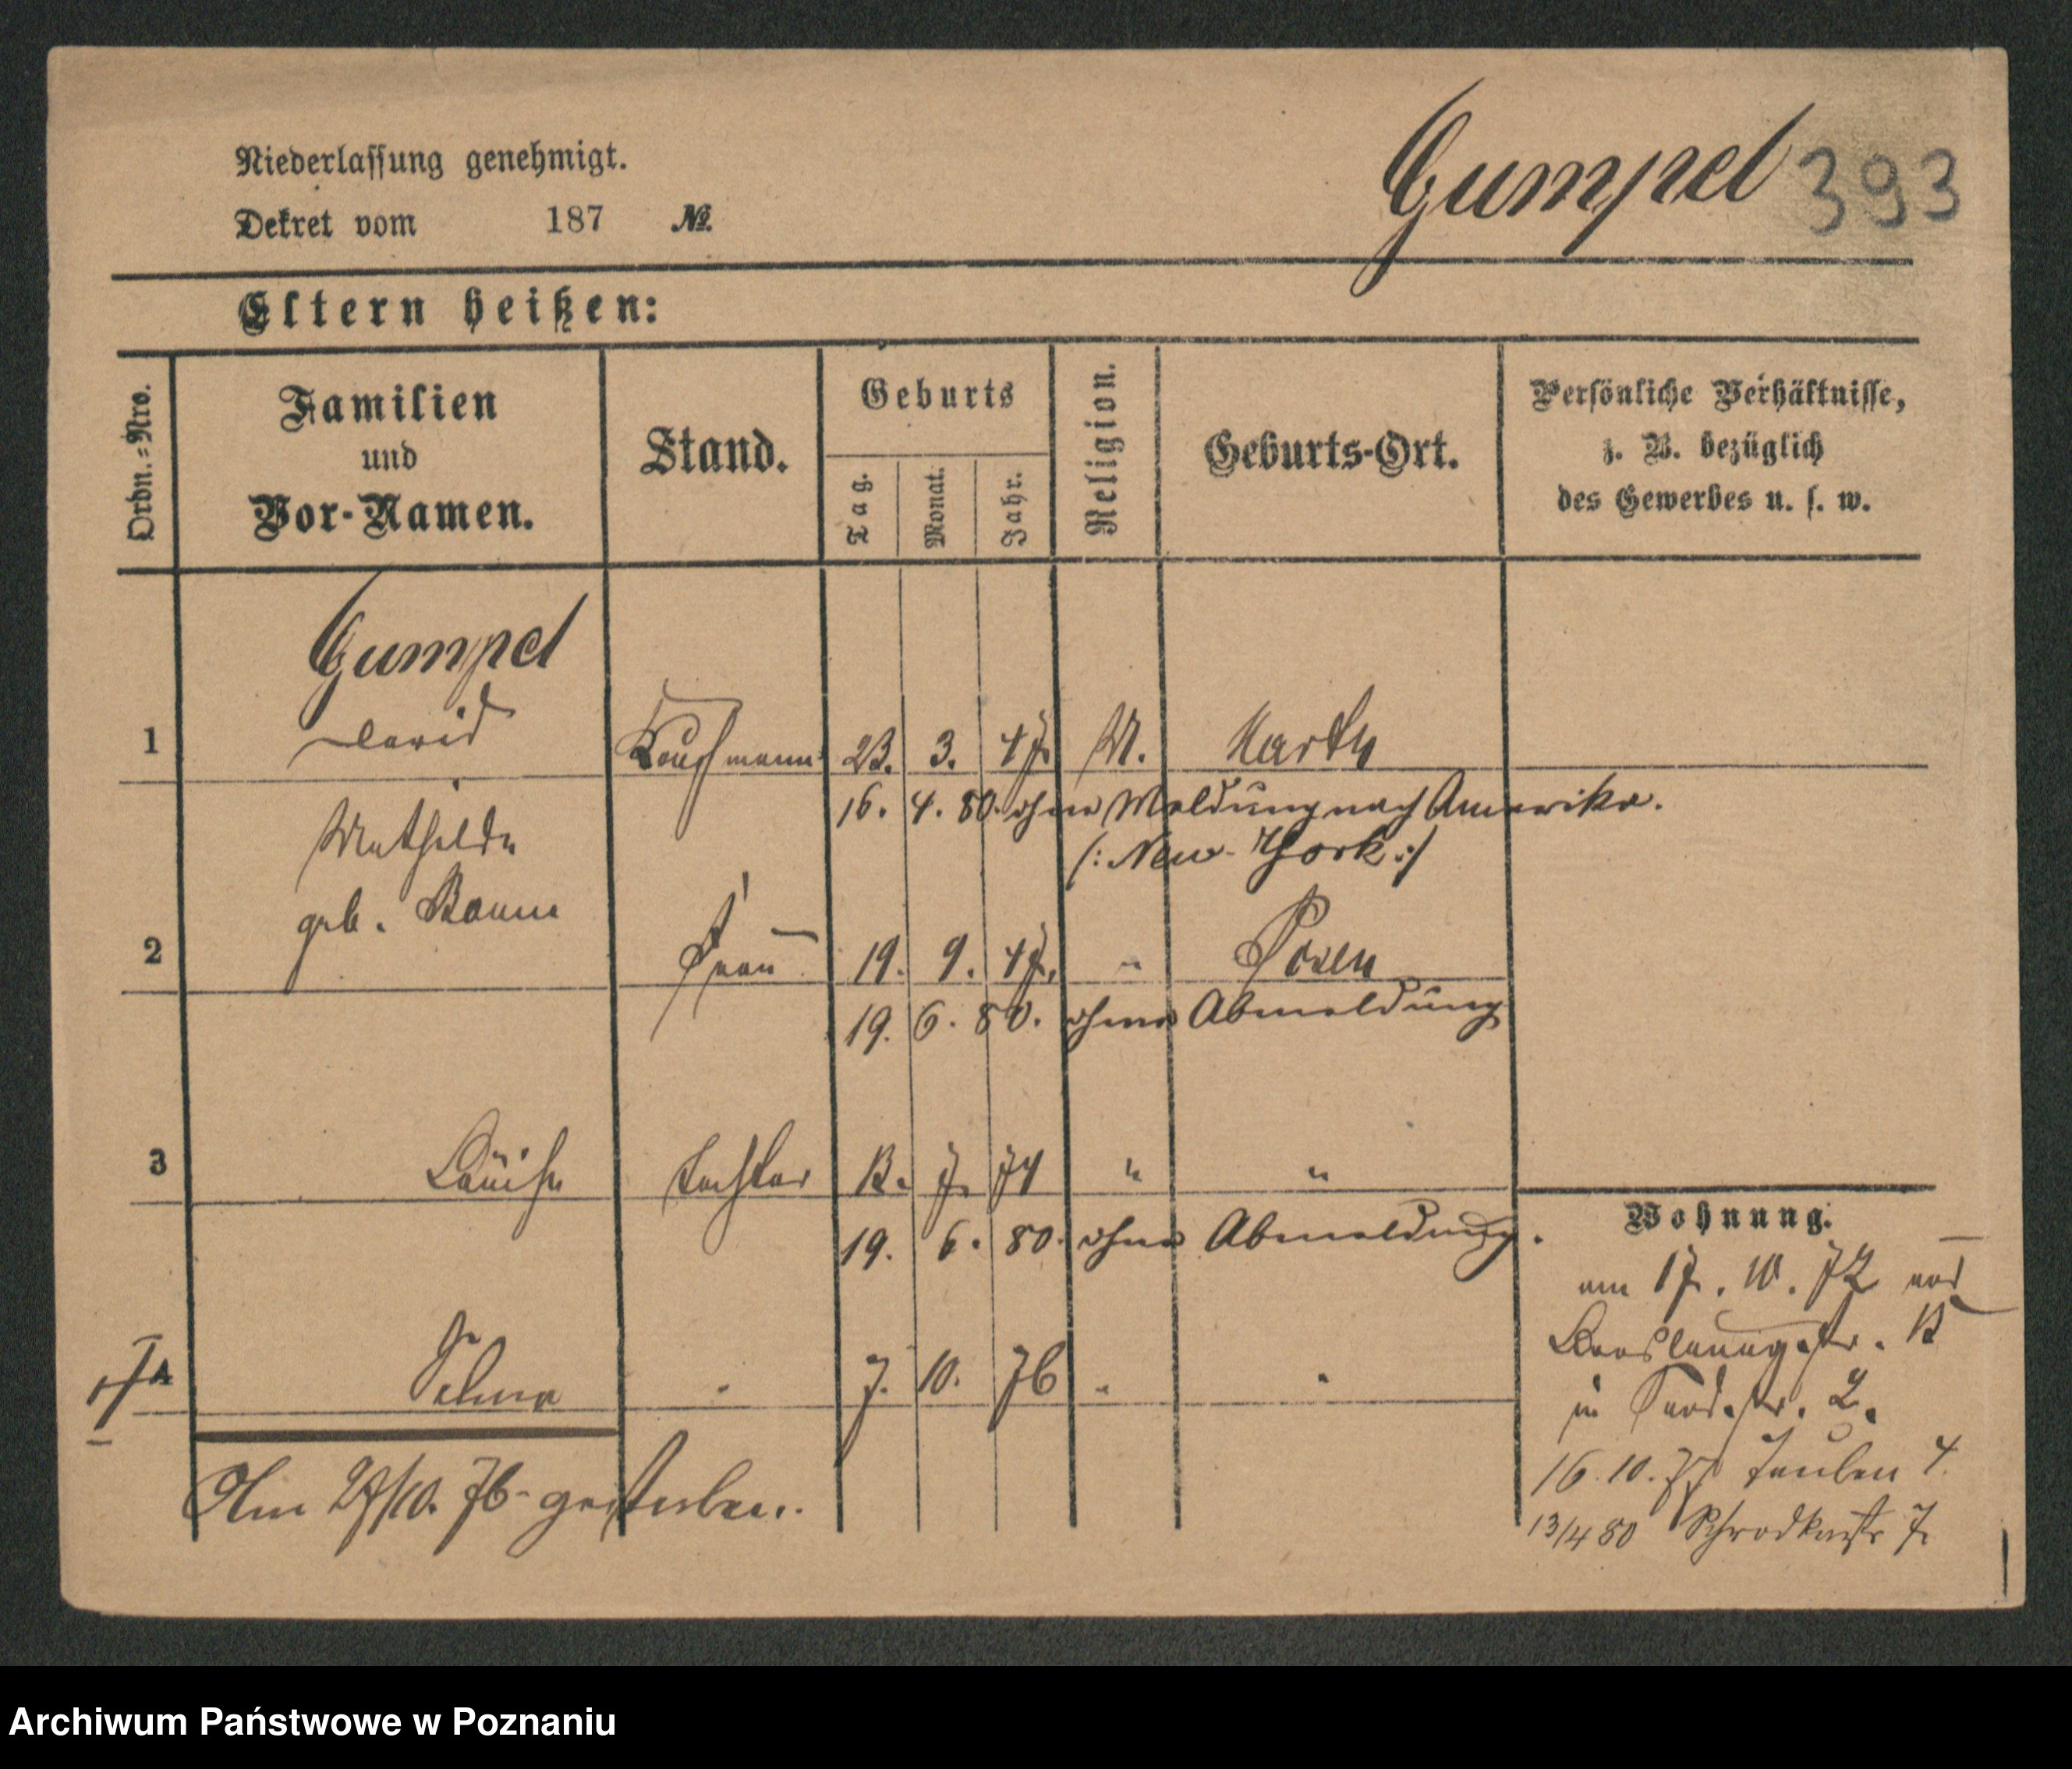 Gumpel 393
Niederlassung genehmigt.
Dekret vom 187 №.
Eltern heißen:
Ordn.=Nro.
Familien
und
Vor-Namen.
Stand.
Geburts
Tag.
Monat.
Jahr.
Religion.
Geburts-Ort.
Persönliche Verhältnisse,
z. B. bezüglich
des Gewerbes u. s. w.
Gumpel
1 David Kaufmann 23. 3. 47 M.
16. 4. 80. ohne Meldung nach Amerika.
(: New-York :)
Mathilde
geb.
2 Frau 19. 9. 47. " Posen
19. 6. 80. ohne Abmeldung
3 Louise Tochter 13. 7. 74 " "
19. 6. 80. ohne Abmeldung.
Selma " 7. 10. 76 " "
Am 29/10. 76 gestorben.
Wohnung.
am 17. 10. 72 von
Breslauerstr. 13
in 2.
16. 10. 77 Tauben 4.
13/4 80 Schrodkastr 7